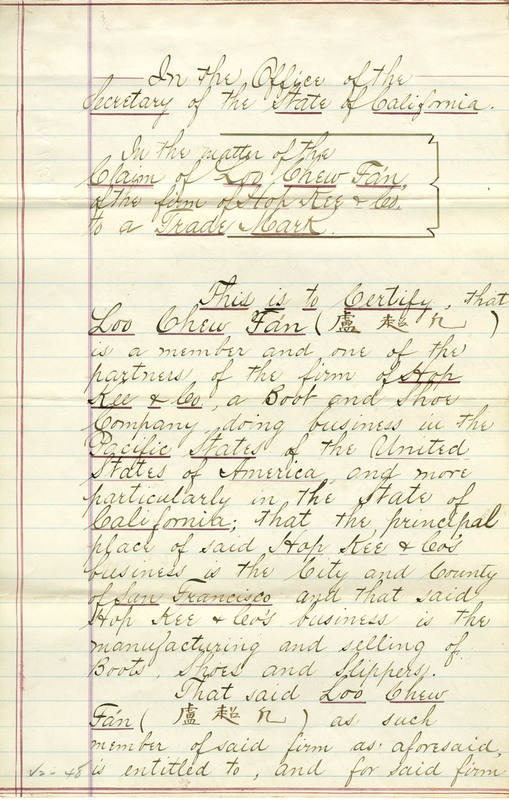 In the Office of the
Secretary of the State of California.
In the matter of the
Claim of Loo Chew Fán,
of the firm of Hop Kee & Co.
to a Trade Mark.
This is to Certify, that
Loo Chew Fán (盧超凡)
is a member and one of the
partners, of the firm of Hop
Kee & Co, a Boot and Shoe
Company doing business in the
Pacific States of the United
States of America, and more
particularly in the State of
California; that the principal
place of said Hop Kee & Co's
business is the City and County
of San Francisco and that said
Hop Kee & Co's business is the
manufacturing and selling of
Boots, Shoes and Slippers.
That said Loo Chew
Fán (盧超凡) as such
member of said firm as aforesaid,
is entitled to, and for said firm